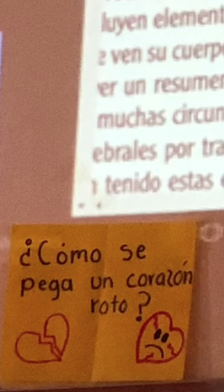 luyen element
e ven su cuerp
er un resume
muchas circun
ebrales por tra
tenido estas
¿Cómo se
pega un corazón
roto?